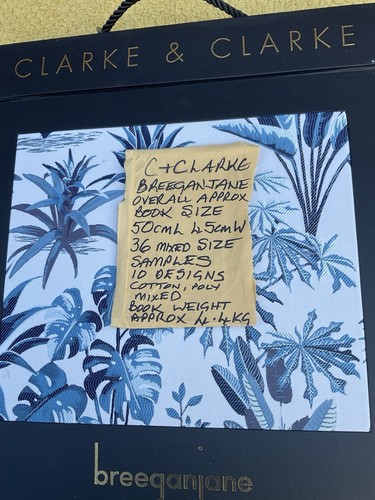 CLARKE & CLARKE
C+CLARKE
BREEGANJANE
OVERALL APPROX
BOOK SIZE
50CML 45CMW
36 MIXED SIZE
SAMPLES
10 DESIGNS
COTTON, POLY
MIXED
BOOK WEIGHT
APPROX 4.4KG
breeganjane